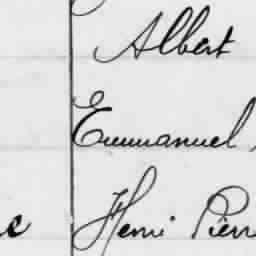 Albert
Emmanuel
Henri Pierr